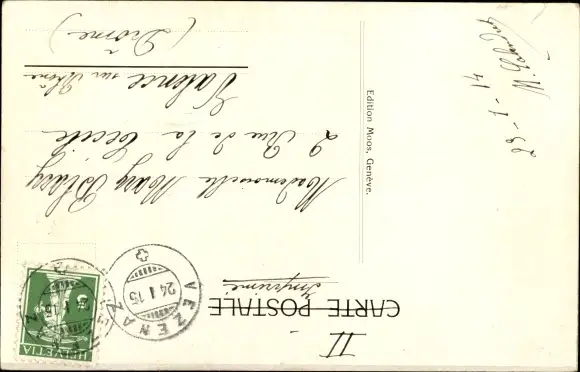 II
CARTE POSTALE
Imprimé
VEZENAZ
24 I 15
HELVETIA
5
Mademoiselle Mary
2 Rue de la Cécile
Valence sur Rhône
(Drôme)
Edition Moos, Genève.